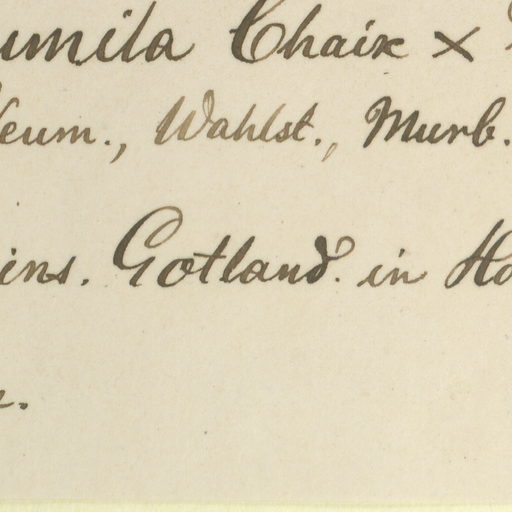 umila Chaix ×
eum., Wahlst., Murb.
ins. Gotland. in Ho